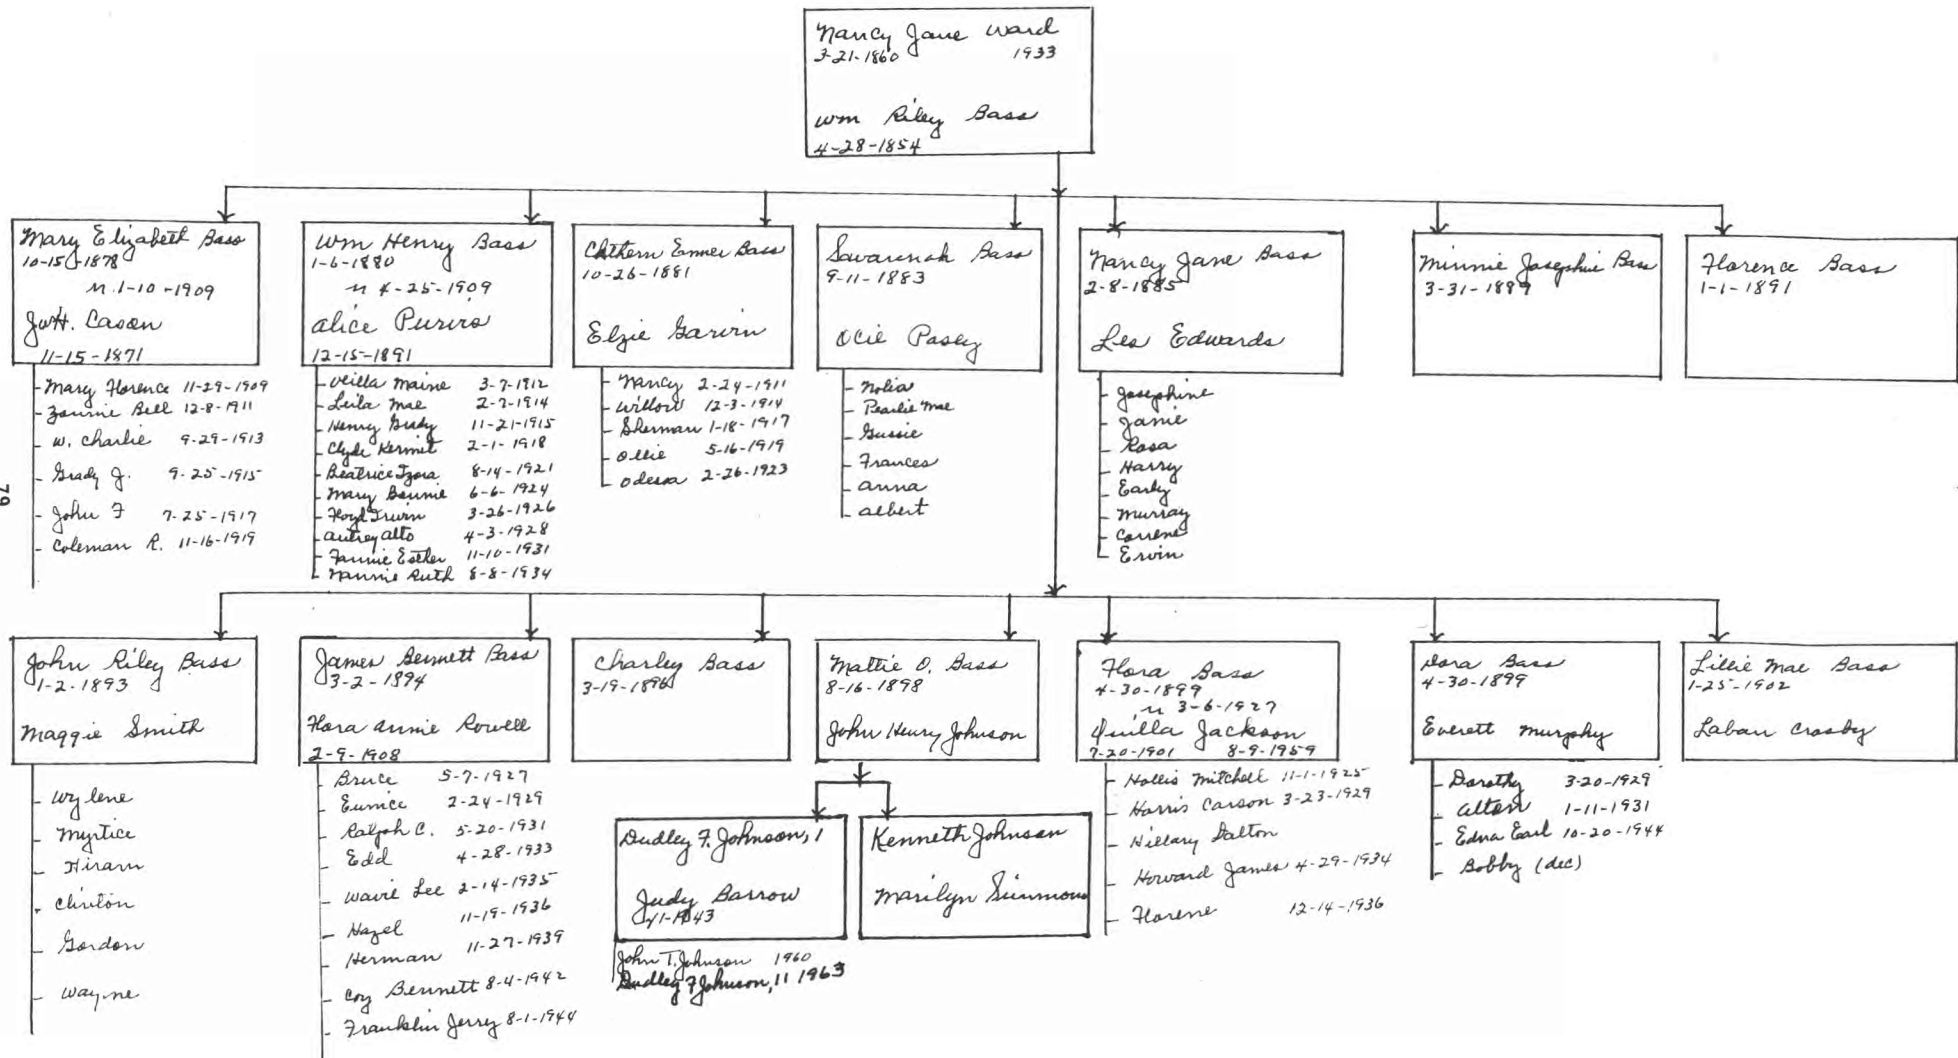 Nancy Jane Ward
3-21-1860 1933
Wm Riley Bass
4-28-1854
Mary Elizabeth Bass
10-15-1878
m. 1-10-1909
J.W.H. Cason
11-15-1871
Mary Florence 11-29-1909
Bell 12-8-1911
W. Charlie 9-29-1913
Grady J. 9-25-1915
John F 7-25-1917
Coleman R. 11-16-1919
Wm Henry Bass
1-6-1880
m 4-25-1909
Alice Purvis
12-15-1891
Maine 3-7-1912
Leila Mae 2-7-1914
Henry 11-21-1915
Clyde Kermit 2-1-1918
Beatrice 8-14-1921
Mary Bonnie 6-6-1924
Floyd Irwin 3-26-1926
Autrey Alto 4-3-1928
Fannie Esther 11-10-1931
Nannie Ruth 8-8-1934
Bass
10-26-1881
Elzie Garvin
Nancy 2-24-1911
12-3-1914
Sherman 1-18-1917
Ollie 5-16-1919
Odessa 2-26-1923
Savannah Bass
9-11-1883
Ocie Pasley
Nolia
Pearlie Mae
Gussie
Frances
Anna
Albert
Nancy Jane Bass
2-8-1885
Les Edwards
Josephine
Janie
Rosa
Harry
Early
Murray
Correne
Ervin
Minnie Josephine Bass
3-31-1889
Florence Bass
1-1-1891
79
John Riley Bass
1-2-1893
Maggie Smith
Wylene
Myrtice
Hiram
Clinton
Gordon
Wayne
James Bennett Bass
3-2-1894
Flora Annie Rowell
2-9-1908
Bruce 5-7-1927
Eunice 2-24-1929
Ralph C. 5-20-1931
Edd 4-28-1933
Wavie Lee 2-14-1935
Hazel 11-19-1936
Herman 11-27-1939
Coy Bennett 8-4-1942
Franklin Jerry 8-1-1944
Charley Bass
3-19-1896
Mattie O. Bass
8-16-1898
John Henry Johnson
Dudley F. Johnson, 1
Judy Barrow
John T. Johnson 1960
Dudley F Johnson, 11 1963
Kenneth Johnson
Marilyn Simmons
Flora Bass
4-30-1899
m 3-6-1927
Quilla Jackson
7-20-1901 8-9-1959
Hollis Mitchell 11-1-1925
Harris Carson 3-23-1929
Hillary Dalton
Howard James 4-29-1934
Florene 12-14-1936
Dora Bass
4-30-1899
Everett Murphy
Dorothy 3-20-1929
Alton 1-11-1931
Edna Earl 10-20-1944
Bobby (dec)
Lillie Mae Bass
1-25-1902
Laban Crosby